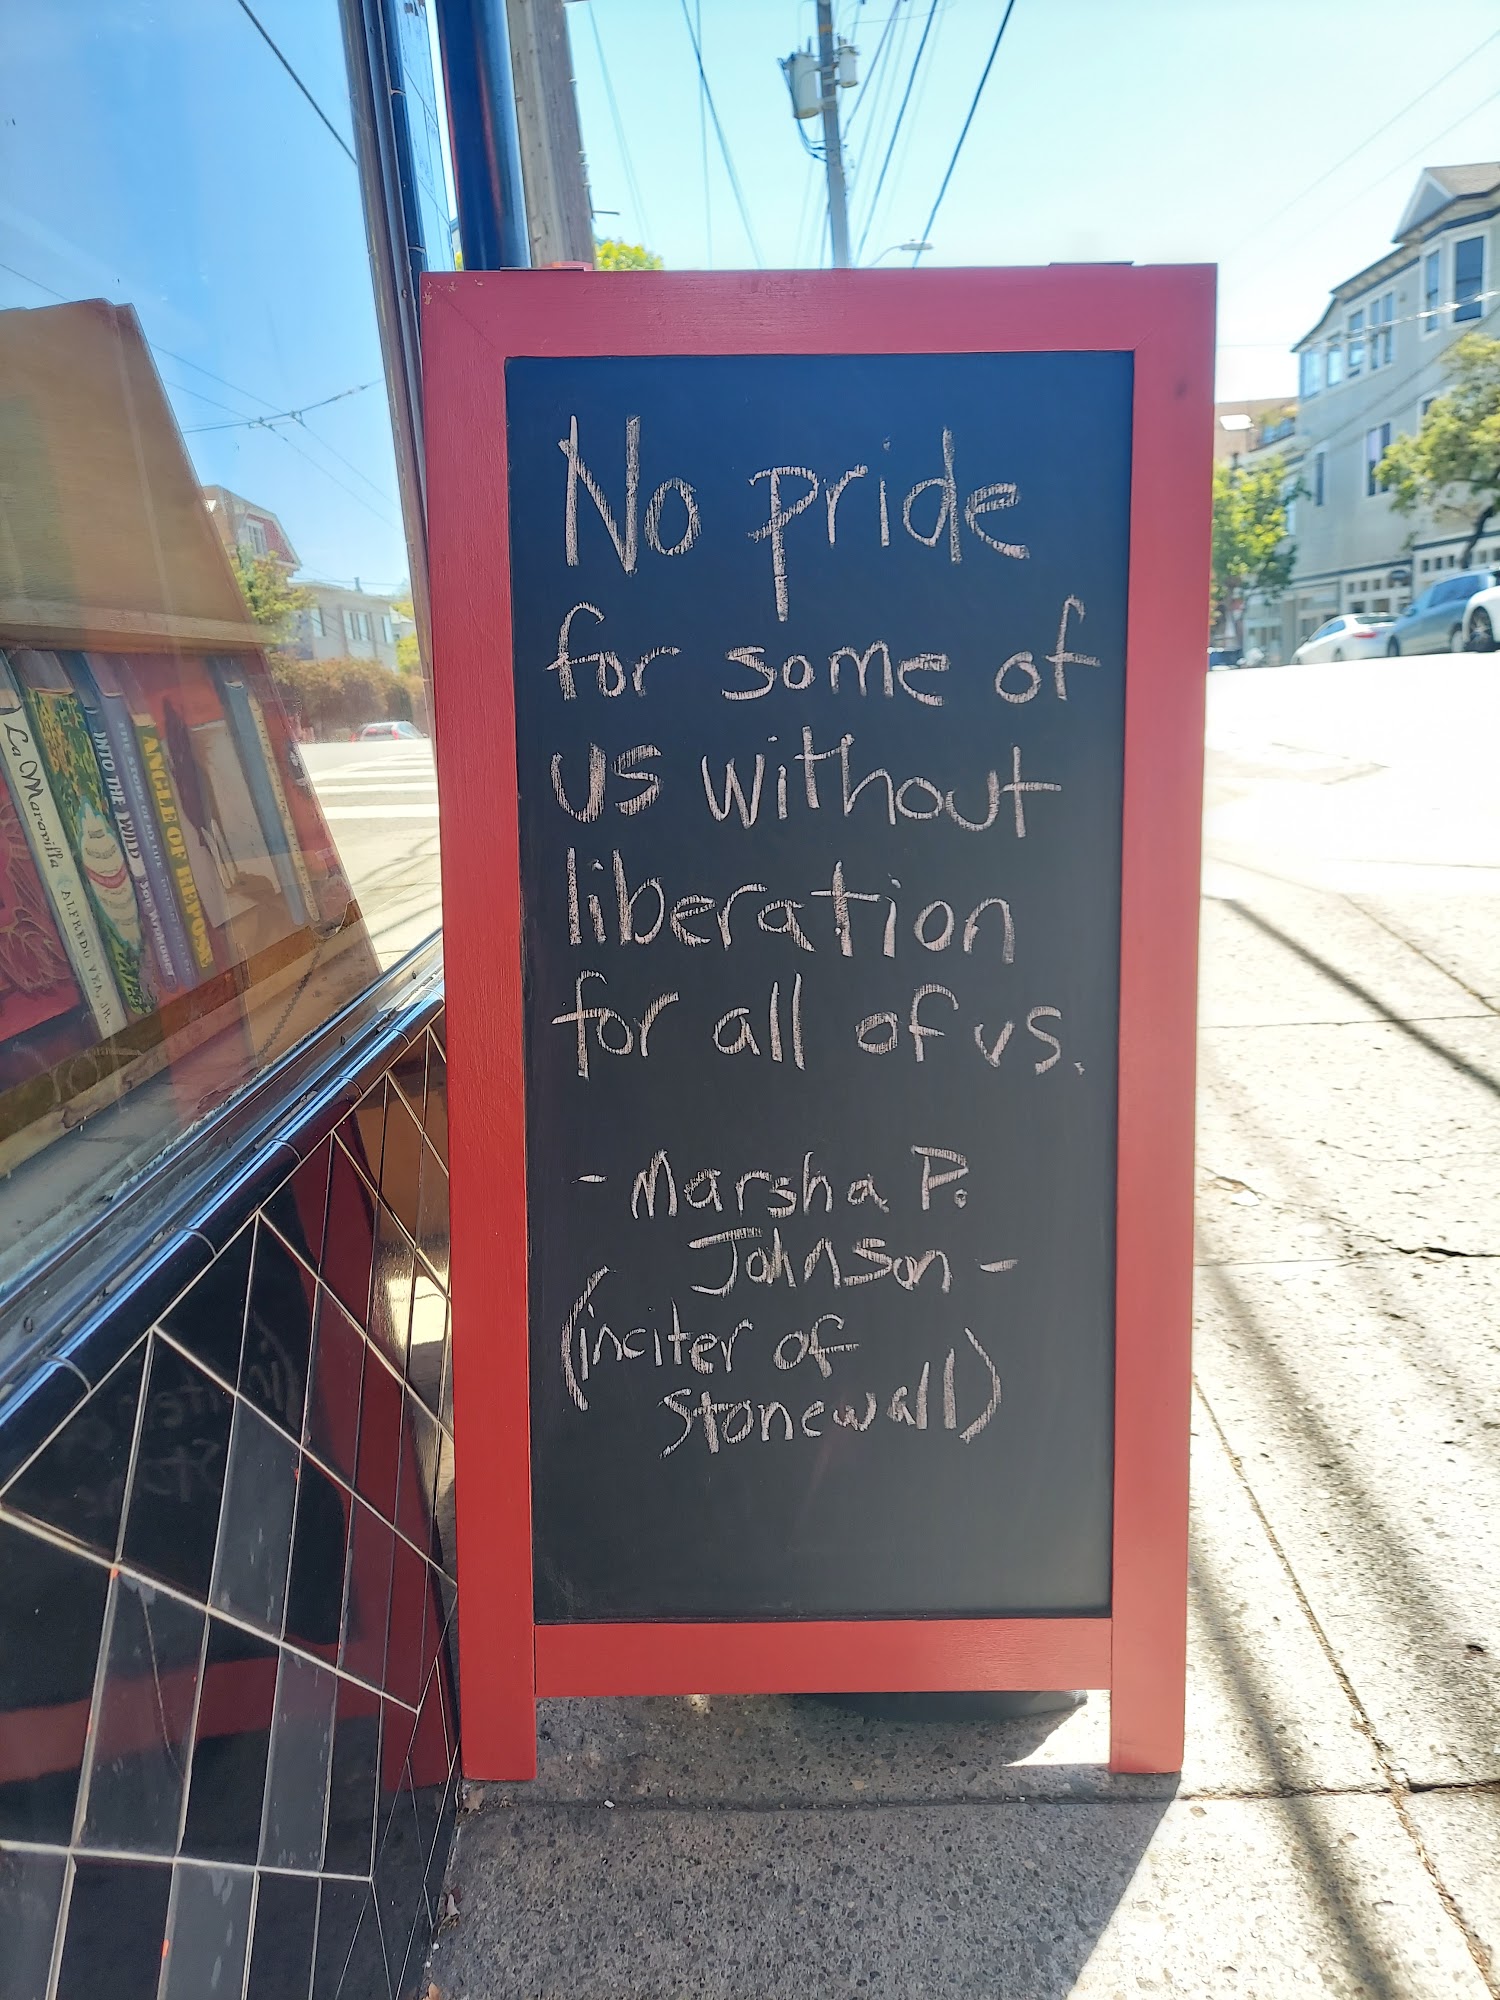 No pride
for some of
us without
liberation
for all of us.
- Marsha P.
Johnson -
(inciter of
Stonewall)
La Maravilla ALFREDO VEA, JR.
INTO THE WILD
THE STORY OF MY LIFE
ANGLE OF REPOSE